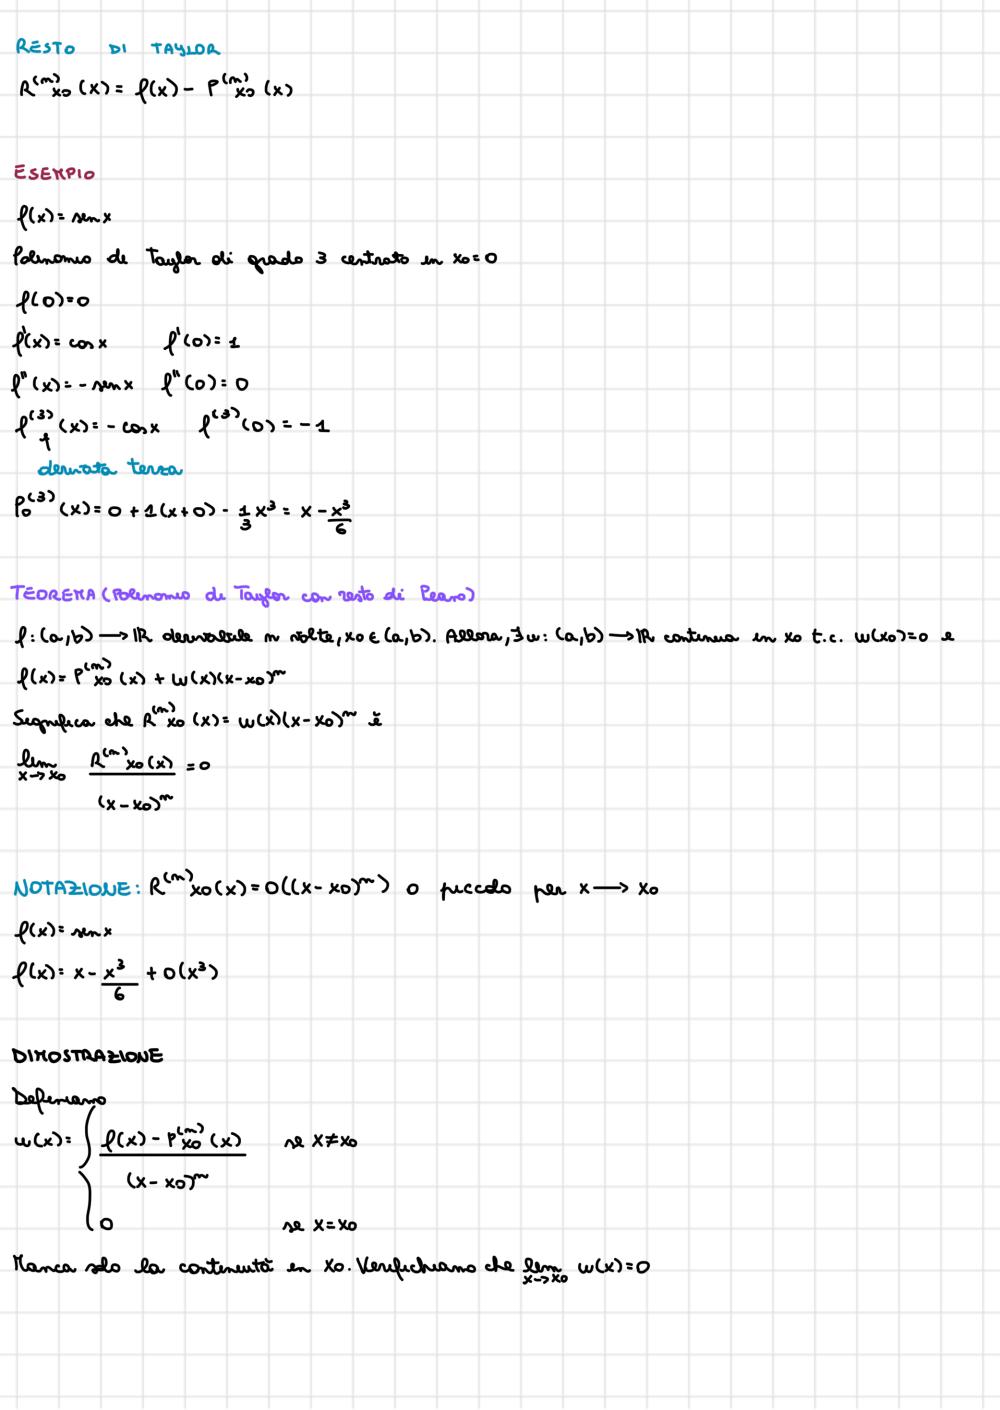 RESTO DI TAYLOR
R^(n)_x0 (x) = f(x) - P^(n)_x0 (x)
ESEMPIO
f(x) = sen x
Polinomio di Taylor di grado 3 centrato in x0 = 0
f(0) = 0
f'(x) = cos x f'(0) = 1
f''(x) = - sen x f''(0) = 0
f^(3)(x) = - cos x f^(3)(0) = -1
derivata terza
P_0^(3)(x) = 0 + 1(x+0) - 1/3 x³ = x - x³/6
TEOREMA (Polinomio di Taylor con resto di Peano)
f: (a,b) → ℝ derivabile n volte, x0 ∈ (a,b). Allora, ∃ w: (a,b) → ℝ continua in x0 t.c. w(x0) = 0 e
f(x) = P^(n)_x0 (x) + w(x)(x-x0)^n
Significa che R^(n)_x0 (x) = w(x)(x-x0)^n è
lim x→x0 R^(n)_x0 (x) / (x-x0)^n = 0
NOTAZIONE: R^(n)_x0 (x) = o((x-x0)^n) o piccolo per x → x0
f(x) = sen x
f(x) = x - x³/6 + o(x³)
DIMOSTRAZIONE
Definiamo
w(x) = { f(x) - P^(n)_x0 (x) / (x-x0)^n se x ≠ x0
0 se x = x0
Manca solo la continuità in x0. Verifichiamo che lim x→x0 w(x) = 0